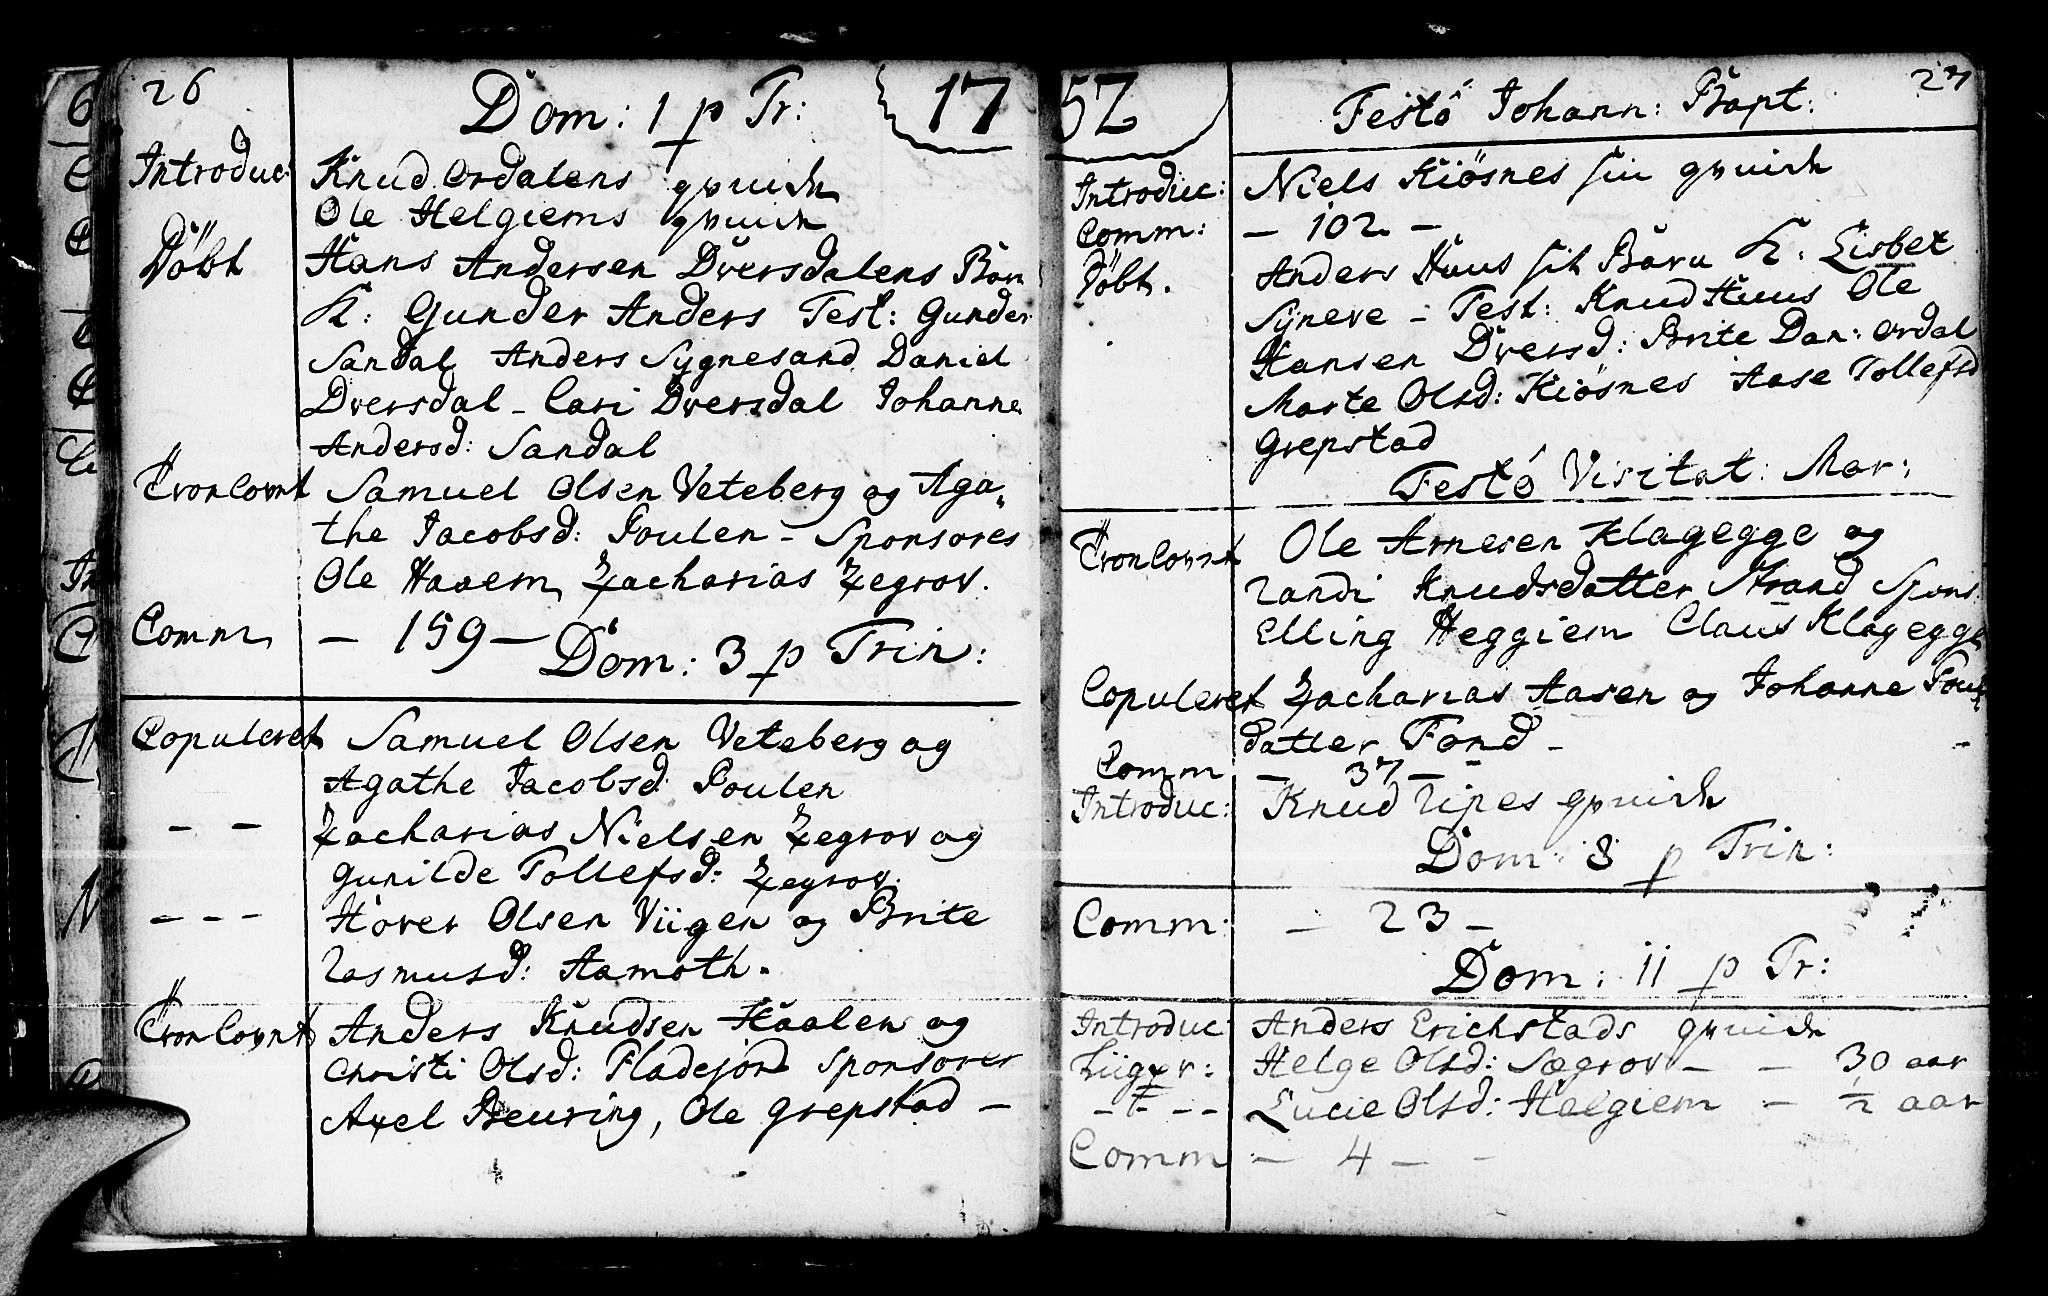 26
Dom: 1 p Tr: 17
Introduc: Knud Ordalens qvinde
Ole Helgiems qvinde
Döbt Hans Andersen Dversdalens Barn
K: Gunder Anders Test: Gunder
Sandal Anders Sygnesand Daniel
Dversdal - Cari Dversdal Johanne
Andersd: Sandal
Trolovet Samuel Olsen Veteberg og Aga-
the Jacobsd: Poulen - Sponsores
Ole Haaem, Zacharias Zegrov.
Comm - 159 -
Dom: 3 p Trin:
Copuleret Samuel Olsen Veteberg og
Agathe Jacobsd: Poulen
- - Zacharias Nielsen Zegrov og
Gunilde Tollefsd: Zegrov.
- - - Hover Olsen Viigen og Brite
Rasmusd: Aamoth.
Trolovet Anders Knudsen Haalen og
Christi Olsd: Fladejord Sponsores
Axel Beuring, Ole Grepstad -
52 Festo Johann: Bapt: 27
Introduc: Niels Kiösnes sin qvinde
Comm: - 102 -
Döbt. Anders Huus sit Barn K: Lisbet
Syneve - Test: Knud Huus Ole
Hansen Dversd: Brite Dan: Ordal
Marte Olsd: Kiösnes Aase Tollefsd
Grepstad
Festo Visitat: Mar:
Trolovet Ole Arnesen Klagegge og
Randi Knudsdatter Strand Spons.
Elling Heggiem Claus Klagegge
Copuleret Zacharias Aasen og Johanne
datter Fond -
Comm - 37 - -
Introduc: Knud Ripes qvinde
Dom: 8 p Trin:
Comm: - 23 -
Dom: 11 p Tr:
Introduc Anders Erichstads qvinde
Helge Olsd: Sægrov - - 30 aar
- - - Lucie Olsd: Helgiem - ½ aar
Comm - 4 - -